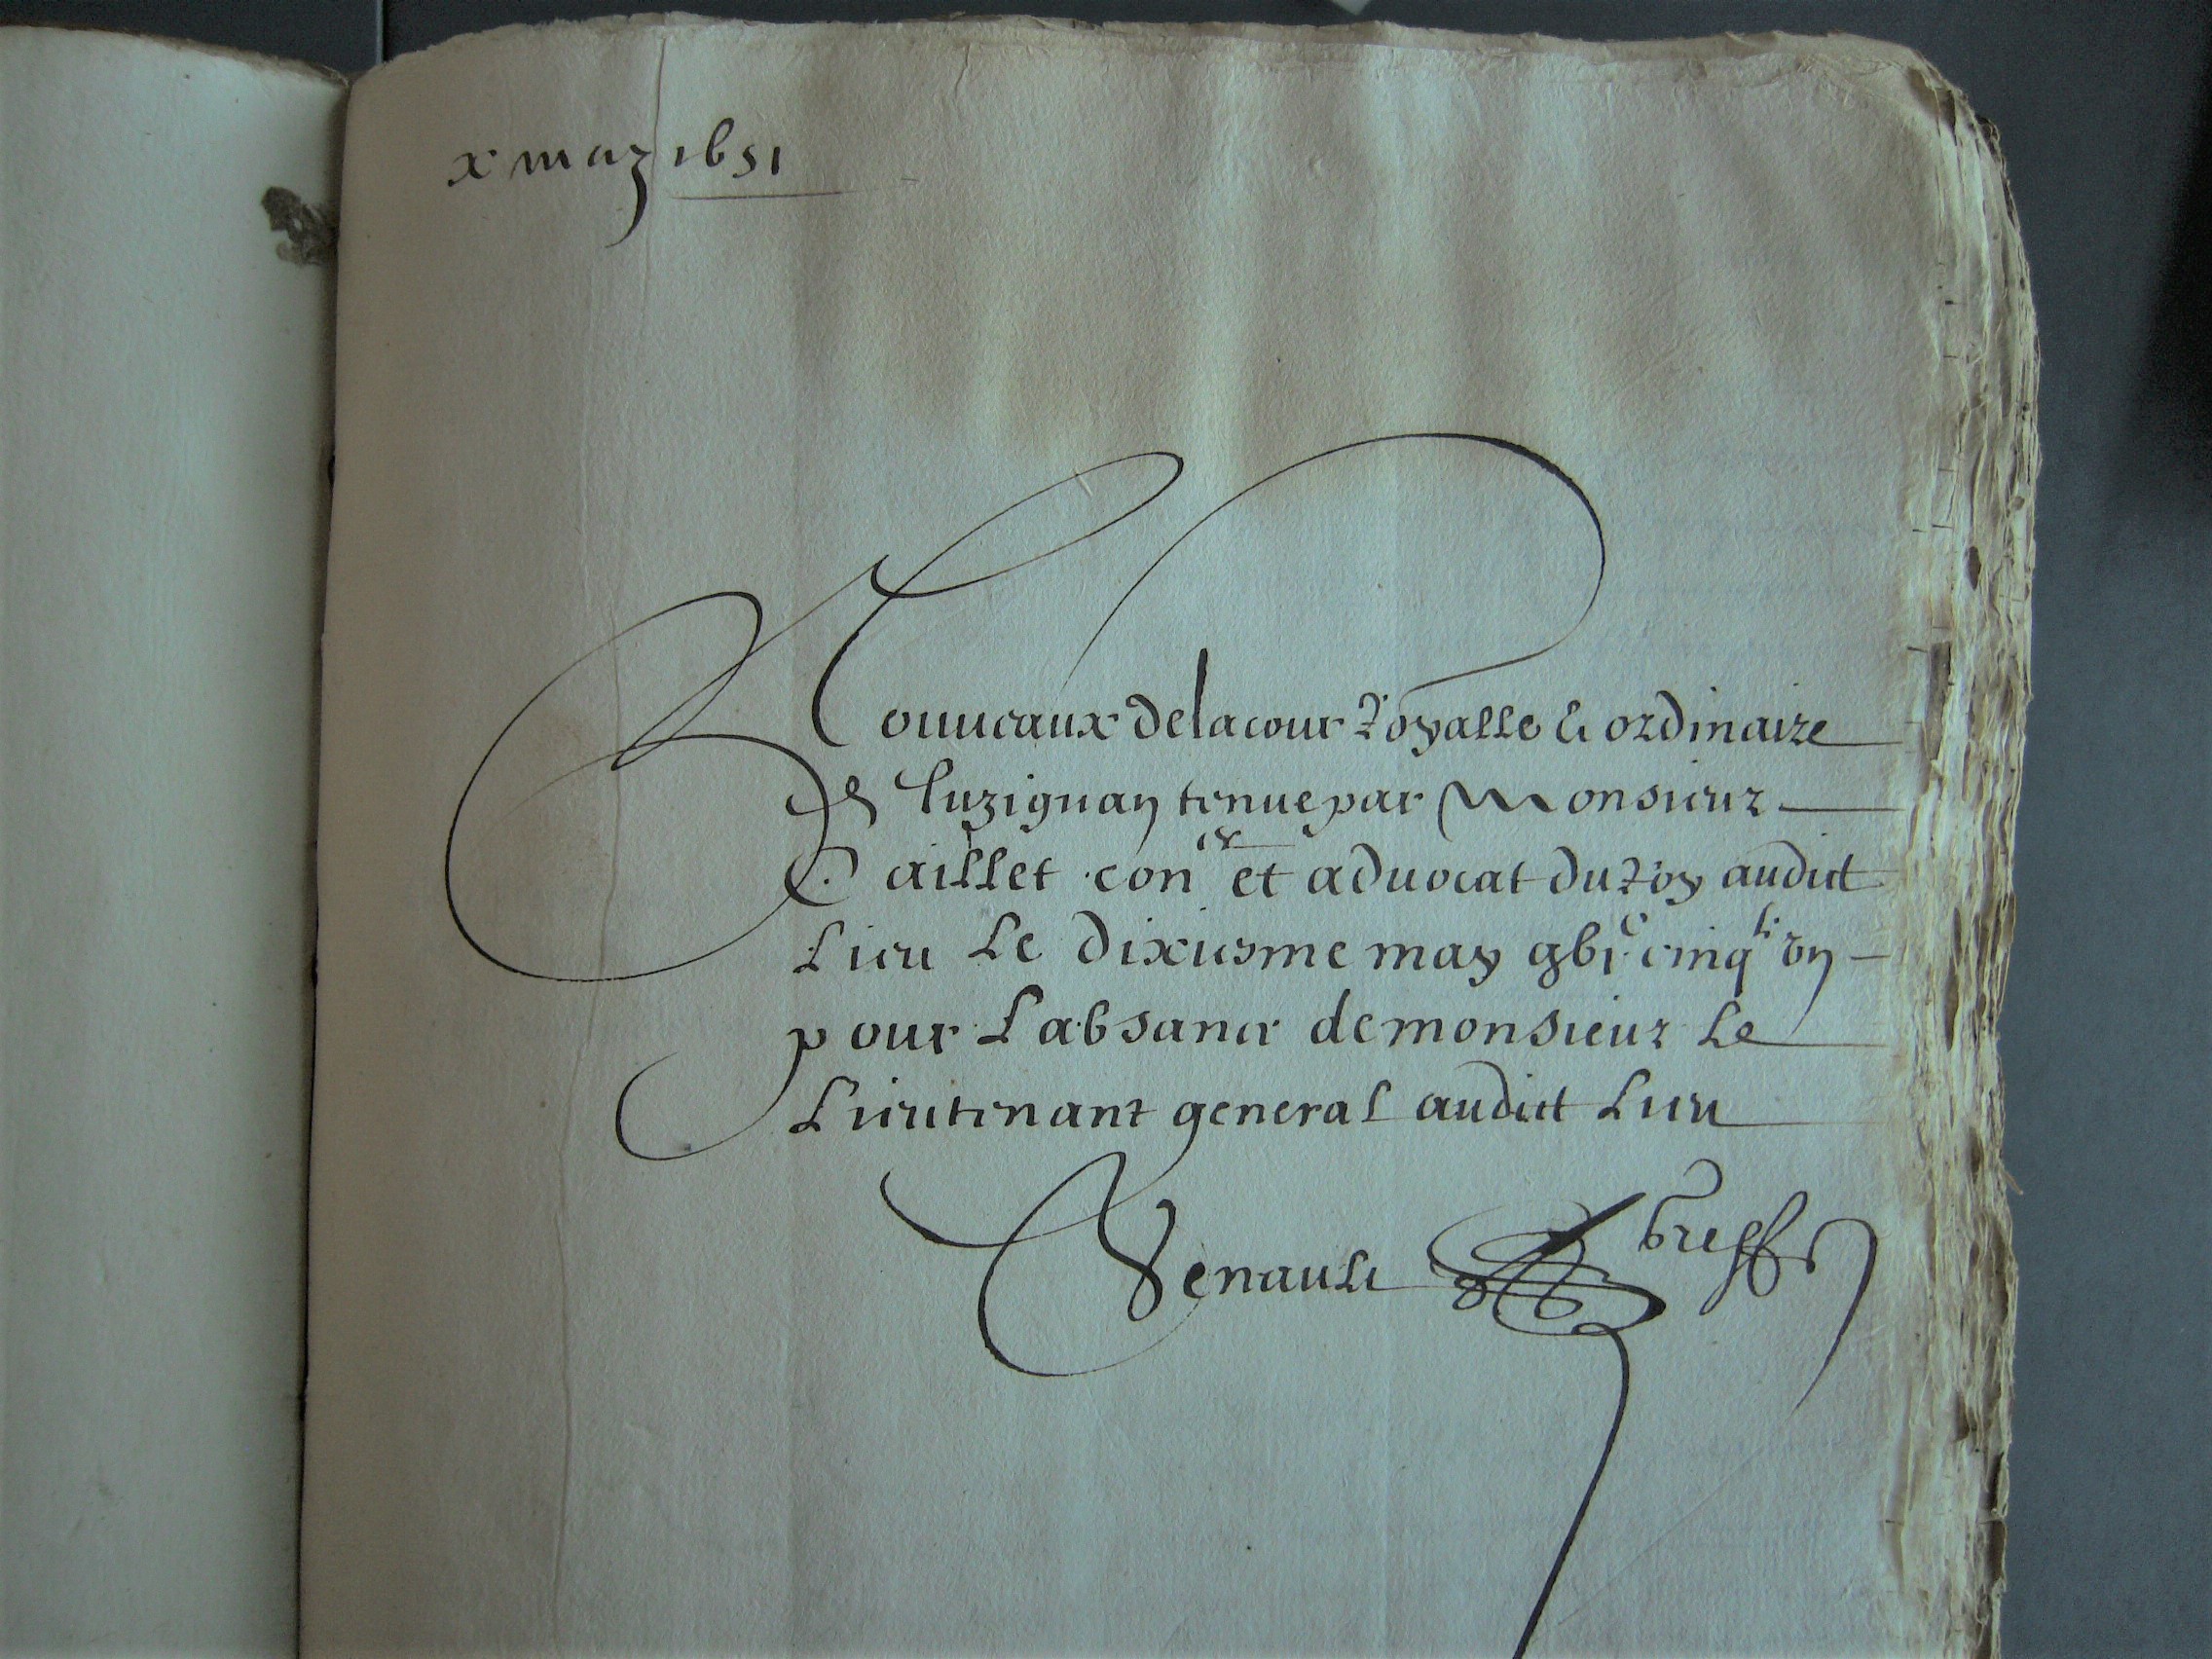 x may 1651
Nouueaux de la cour Royalle et ordinaire
de Luzignan tenue par Monsieur
Caillet con er et aduocat du Roy audict
Lieu Le dixiesme may gbj c cinq te vn
pour Labsance de monsieur Le
Lieutenant general audict Lieu
Venault